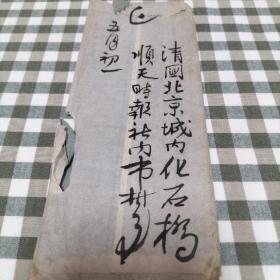 清國北京城内化石橋
順天時報社内
五月初一